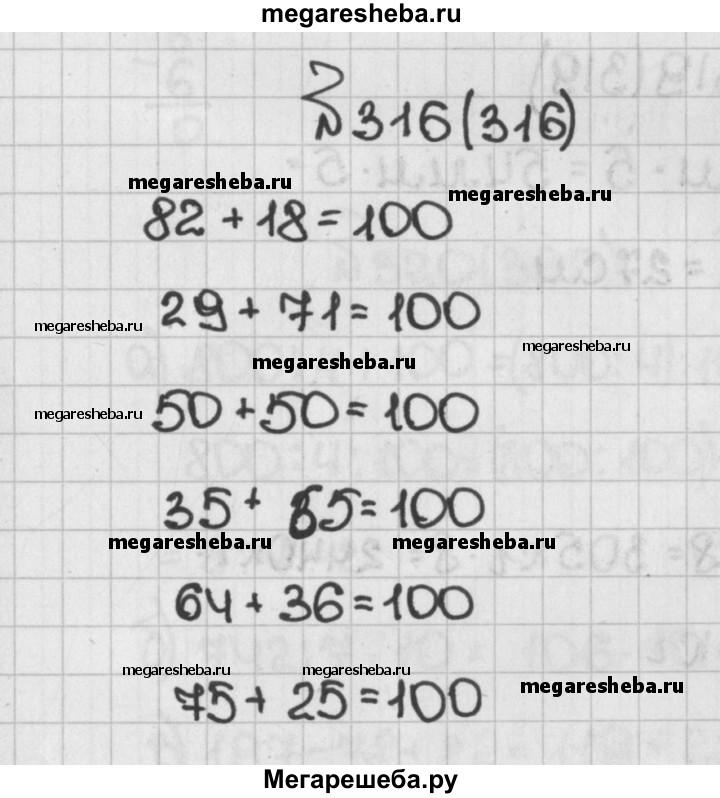 megaresheba.ru
№ 316 (316)
megaresheba.ru megaresheba.ru
82 + 18 = 100
29 + 71 = 100
megaresheba.ru megaresheba.ru
megaresheba.ru
megaresheba.ru 50 + 50 = 100
35 + 65 = 100
megaresheba.ru megaresheba.ru
64 + 36 = 100
megaresheba.ru megaresheba.ru megaresheba.ru
75 + 25 = 100
Мегарешеба.ру